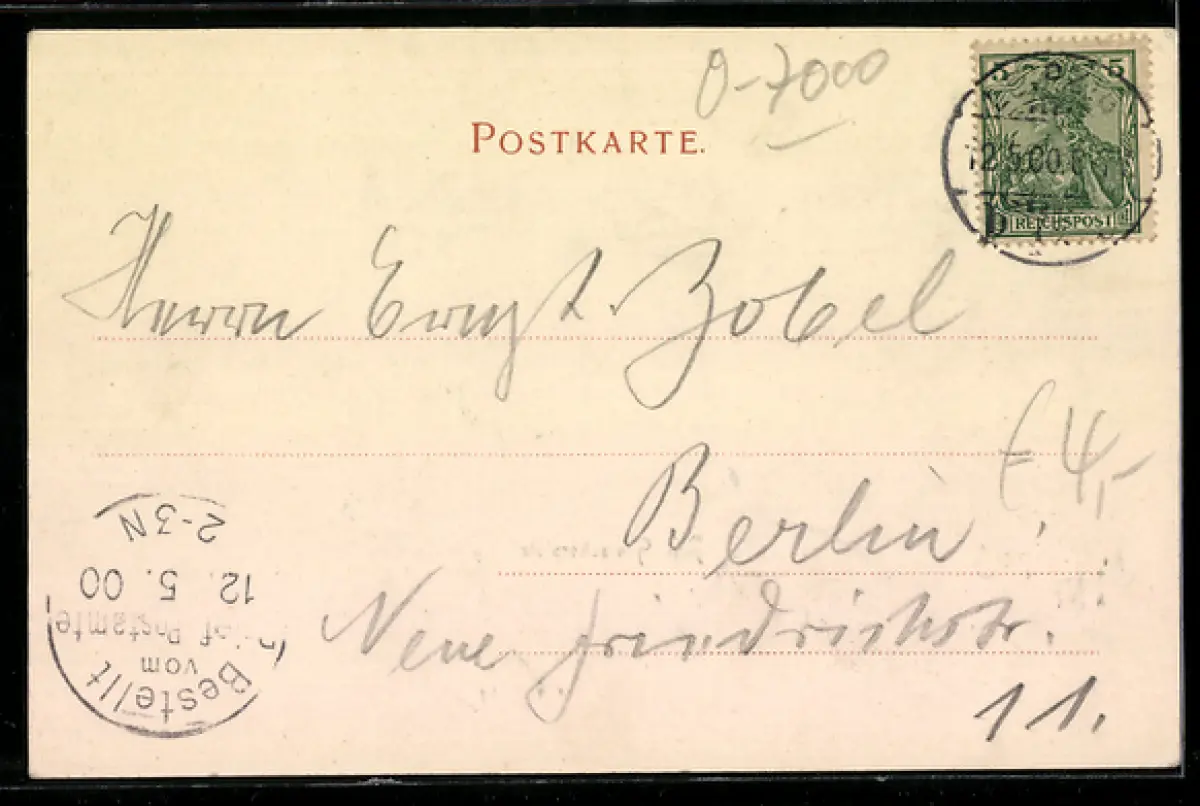 O-7000
POSTKARTE.
5 5
12.5.00.
REICHSPOST
Herrn Ernst Zobel
€ 4,-
Berlin
Neue Friedrichstr.
11.
Bestellt
vom
Postamte
12. 5. 00
2-3N